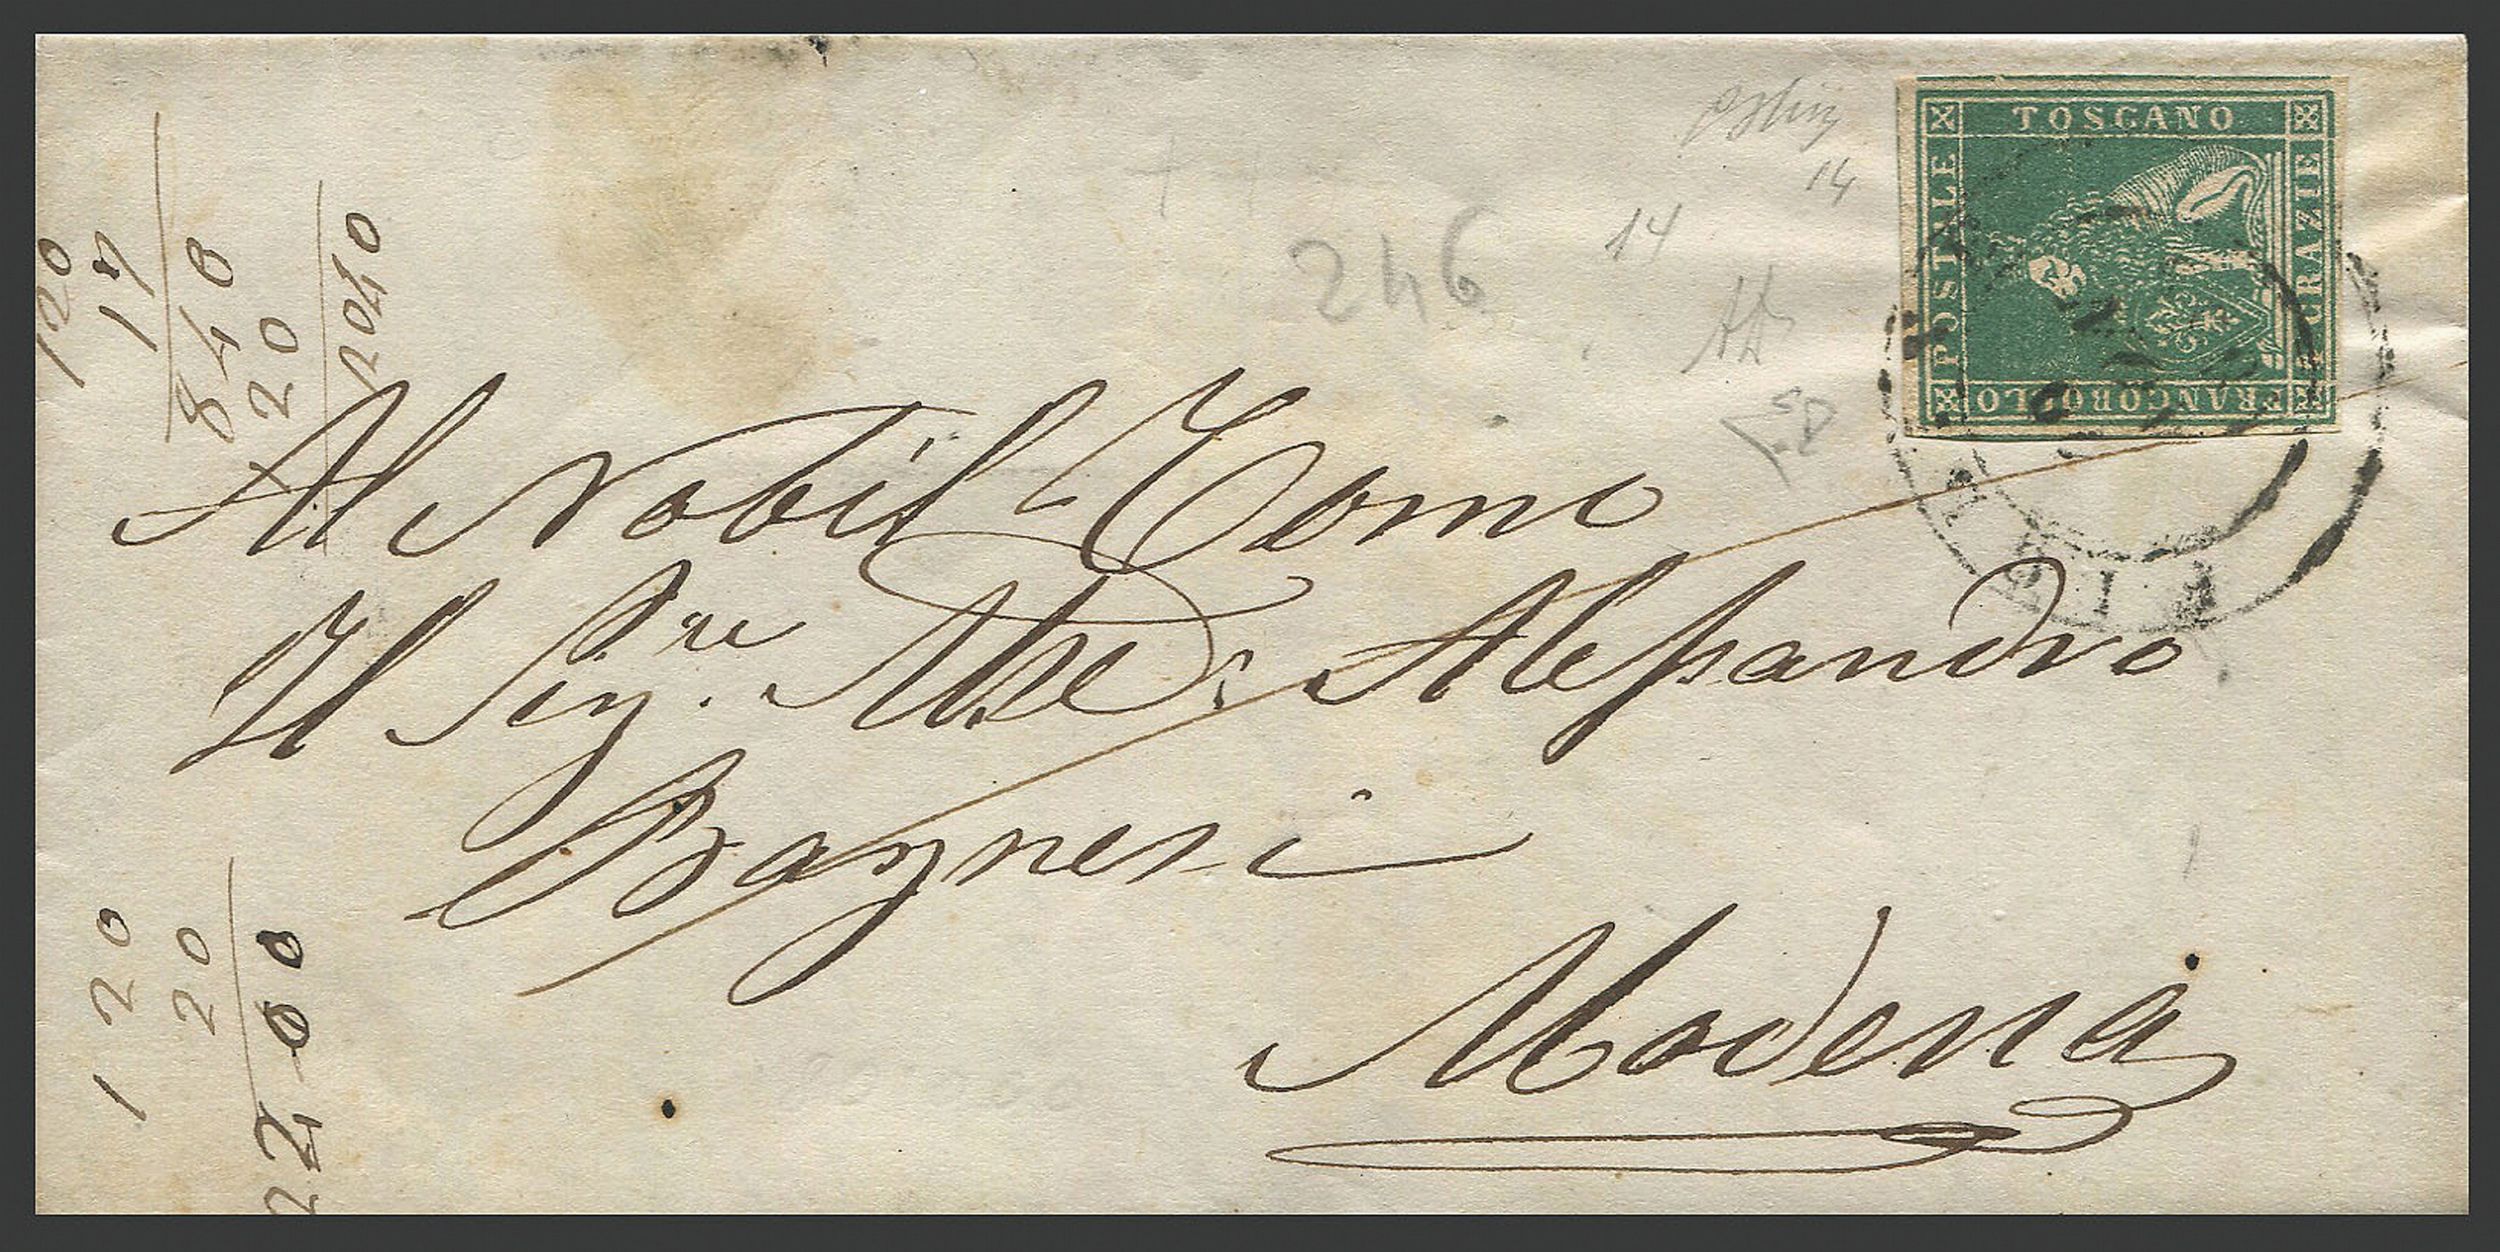 120
17
840
20
2040
246
14
14
TOSCANO
POSTALE
GRAZIE
FRANCOBOLLO
Al Nobil Uomo
Il Sig.re Alessandro
Bagnesi
Modena
120
20